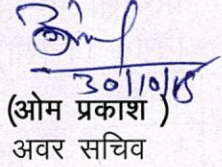 30/10/15
(ओम प्रकाश )
अवर सचिव